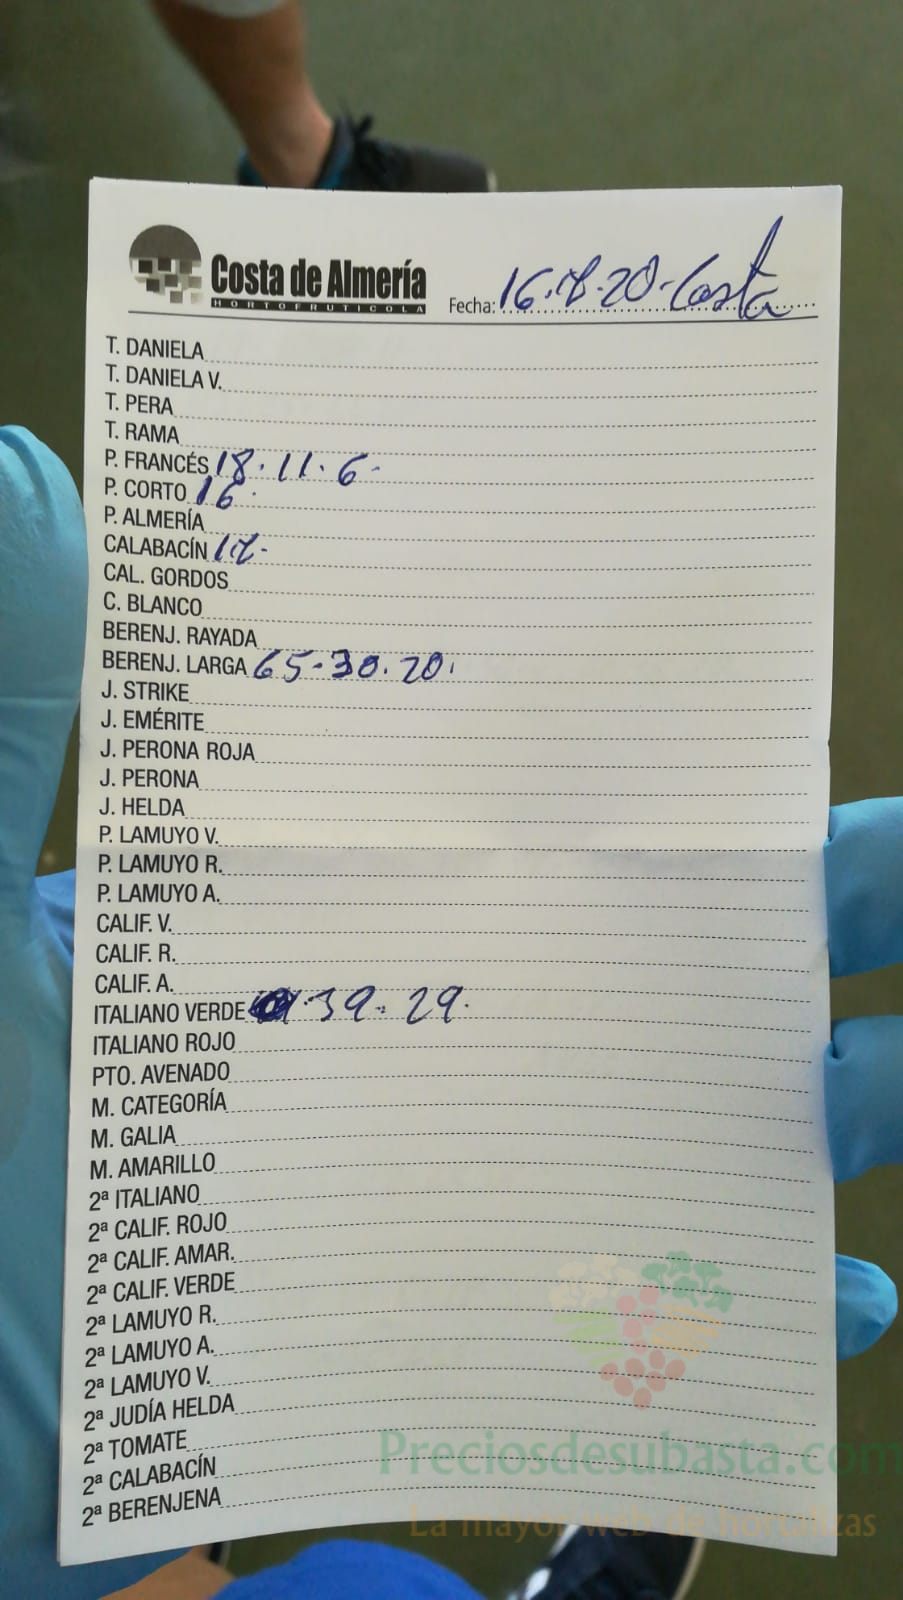 Costa de Almería
HORTOFRUTICOLA
Fecha: 16.7.20-Costa
T. DANIELA
T. DANIELA V.
T. PERA
T. RAMA
P. FRANCÉS 18.11.6-
P. CORTO 16.
P. ALMERÍA
CALABACÍN 17-
CAL. GORDOS
C. BLANCO
BERENJ. RAYADA
BERENJ. LARGA 65.30.20.
J. STRIKE
J. EMÉRITE
J. PERONA ROJA
J. PERONA
J. HELDA
P. LAMUYO V.
P. LAMUYO R.
P. LAMUYO A.
CALIF. V.
CALIF. R.
CALIF. A.
ITALIANO VERDE .39.29.
ITALIANO ROJO
PTO. AVENADO
M. CATEGORÍA
M. GALIA
M. AMARILLO
2ª ITALIANO
2ª CALIF. ROJO
2ª CALIF. AMAR.
2ª CALIF. VERDE
2ª LAMUYO R.
2ª LAMUYO A.
2ª LAMUYO V.
2ª JUDÍA HELDA
2ª TOMATE
2ª CALABACÍN
2ª BERENJENA
Preciosdesubasta.com
La mayor web de hortalizas